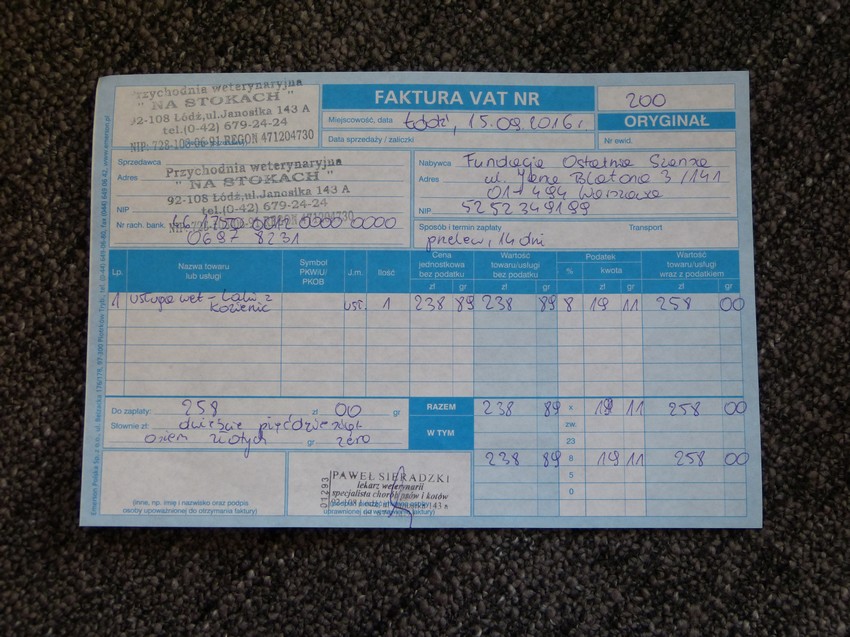 Przychodnia weterynaryjna
" NA STOKACH "
92-108 Łódź,ul.Janosika 143 A
tel.(0-42) 679-24-24
NIP: 728-108-06-91 REGON 471204730
FAKTURA VAT NR
200
Miejscowość, data Łódź, 15.09.2016r.
ORYGINAŁ
Data sprzedaży / zaliczki
Nr ewid.
Sprzedawca
Przychodnia weterynaryjna
Adres
" NA STOKACH "
92-108 Łódź,ul.Janosika 143 A
tel.(0-42) 679-24-24
NIP
Nr rach. bank.
0000 0000
0697 8231
Nabywca Fundacja Ostatnia Szansa
Adres ul. Jana Blatona 3/141
01-494 Warszawa
NIP 5252349199
Sposób i termin zapłaty
Transport
przelew, 14 dni
Lp.
Nazwa towaru lub usługi
Symbol PKWiU/ PKOB
J.m.
Ilość
Cena jednostkowa bez podatku
Wartość towaru/usługi bez podatku
Podatek
Wartość towaru/usługi wraz z podatkiem
zł gr zł gr % kwota zł gr zł gr
1 usługa wet - usł. 1 238 89 238 89 8 19 11 258 00
Do zapłaty: 258 zł 00 gr
RAZEM 238 89 x 19 11 258 00
Słownie zł: dwieście pięćdziesiąt
osiem złotych gr zero
W TYM
zw.
23
238 89 8 19 11 258 00
5
0
01293
PAWEŁ SIERADZKI
lekarz weterynarii
specjalista chorób psów i kotów
(inne, np. imię i nazwisko oraz podpis
osoby upoważnionej do otrzymania faktury)